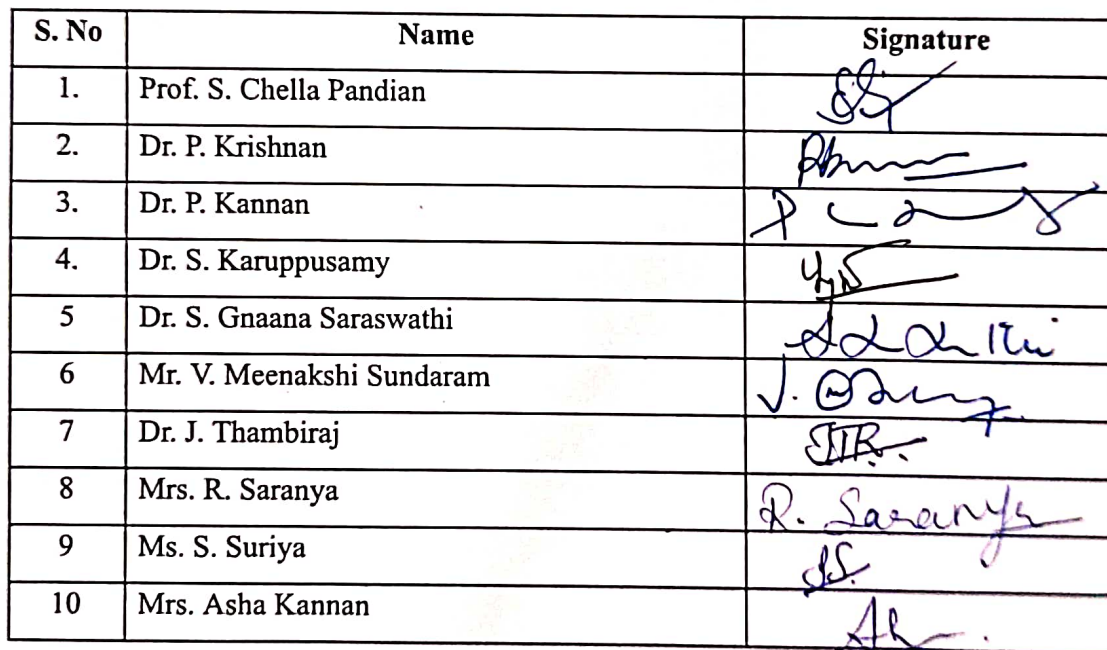 S. No Name Signature
1. Prof. S. Chella Pandian
2. Dr. P. Krishnan
3. Dr. P. Kannan
4. Dr. S. Karuppusamy
5 Dr. S. Gnaana Saraswathi
6 Mr. V. Meenakshi Sundaram
7 Dr. J. Thambiraj
8 Mrs. R. Saranya R. Saranya
9 Ms. S. Suriya
10 Mrs. Asha Kannan